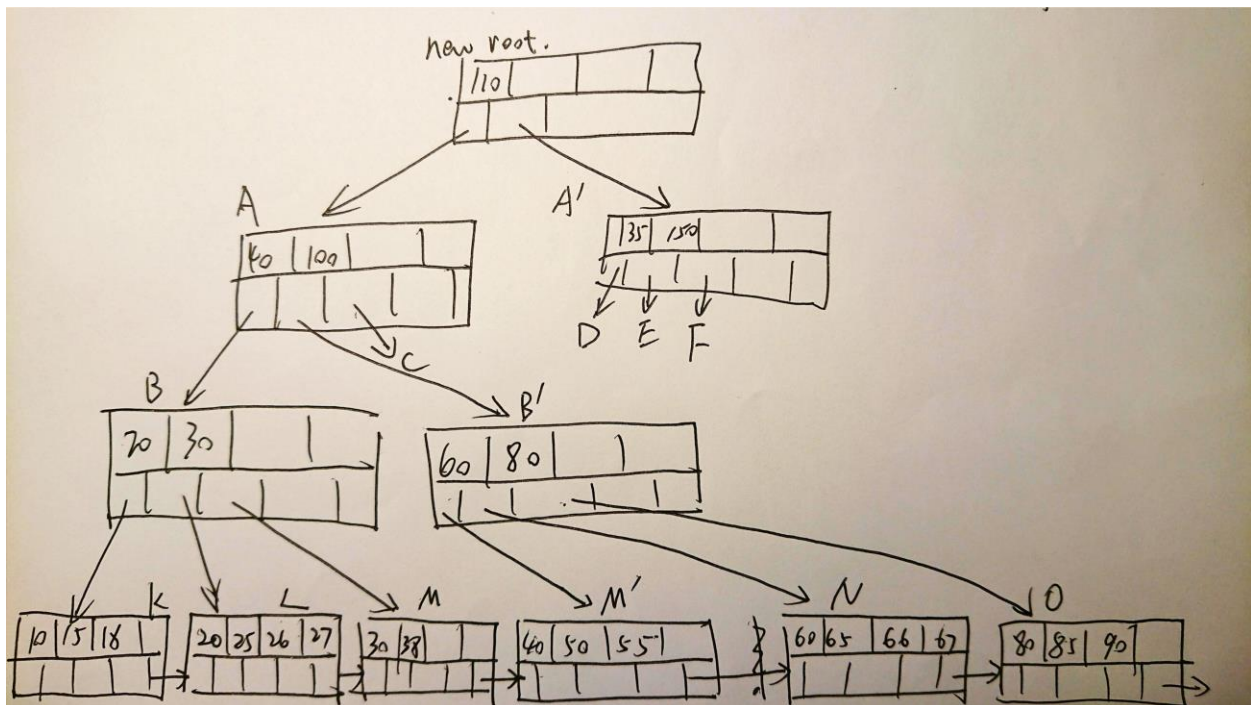 new root.
110
A
A'
40 100
35 150
D E F
C
B
B'
20 30
60 80
K L M M' N O
10 15 18
20 25 26 27
30 38
40 50 55
60 65 66 67
80 85 90